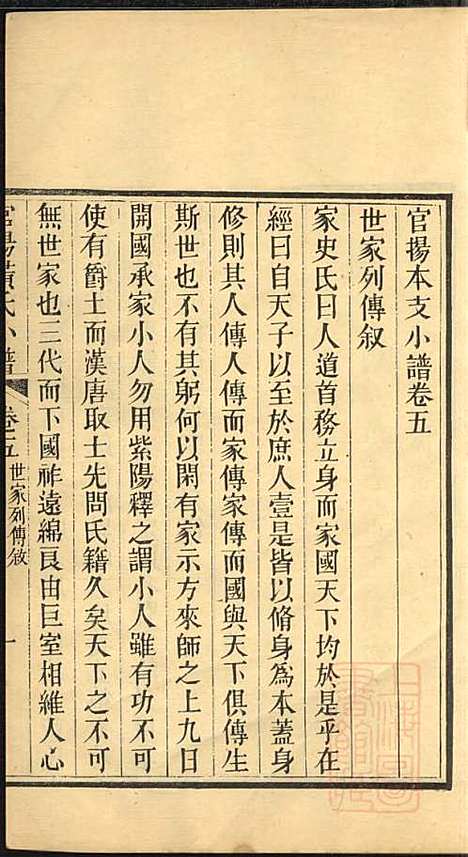 官揚本支小譜卷五
世家列傳敘
家史氏曰人道首務立身而家國天下均於是乎在
經曰自天子以至於庶人壹是皆以脩身為本蓋身
修則其人傳人傳而家傳家傳而國與天下俱傳生
斯世也不有其躬何以閑有家示方來師之上九曰
開國承家小人勿用紫陽釋之謂小人雖有功不可
使有爵土而漢唐取士先問氏籍久矣天下之不可
無世家也三代而下國祚遠綿良由巨室相維人心
氏小譜
卷五
世家列傳敘
一